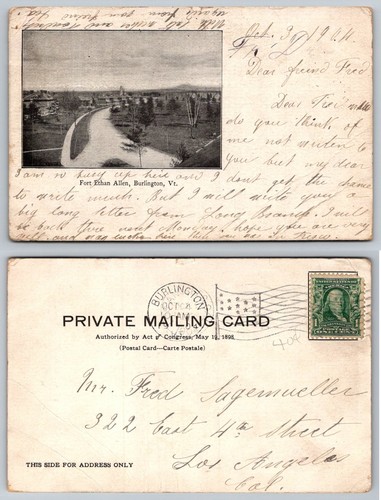 Oct. 3, 1904
Dear friend Fred
Dear Fred what
do you think of
me not writen to
you but my dear
I am so busy up here and I don't get the chance
Fort Ethan Allen, Burlington, Vt.
to write much. But I will write you a
big long letter from Long Beach. I will
be back this next Monday. hope you are very
well and
BURLINGTON
OCT
PRIVATE MAILING CARD
Authorized by Act of Congress, May 19, 1898.
(Postal Card—Carte Postale)
404
Mr. Fred Sagemueller
322 East 4th Street
Los Angeles
Cal.
THIS SIDE FOR ADDRESS ONLY